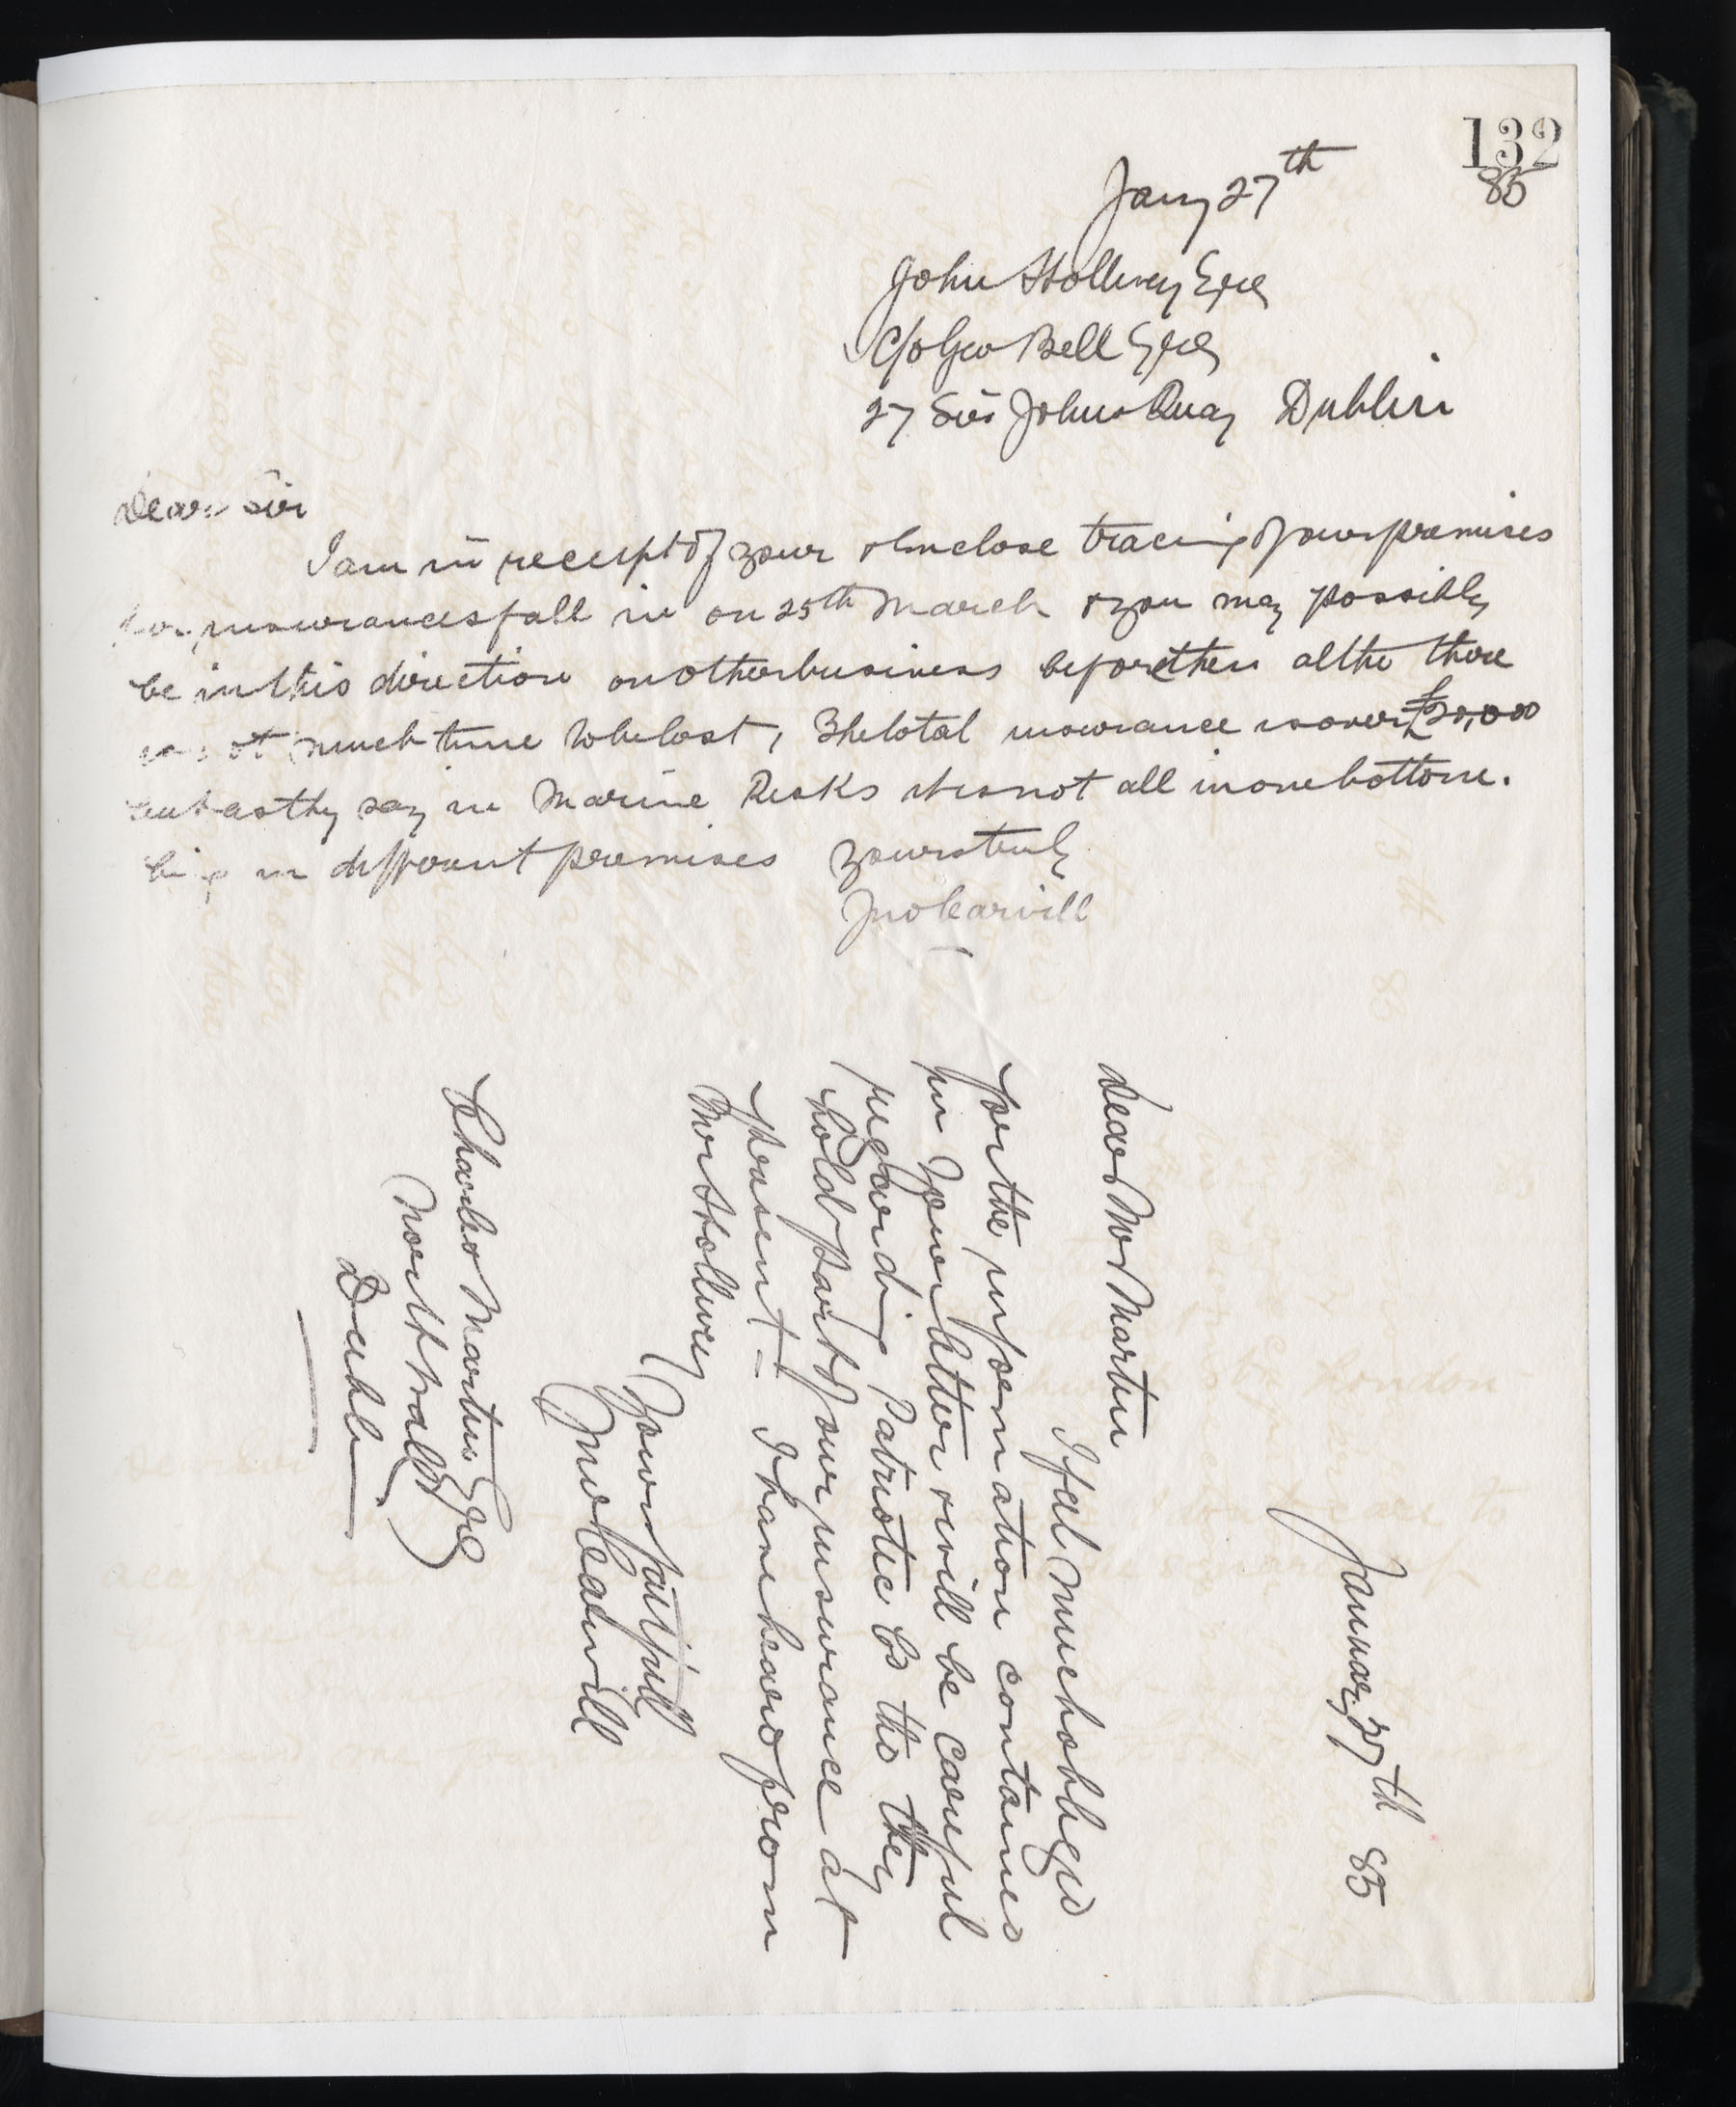 132
Jany 27th 85
John Hollwey Esqe
C/o Geo Bell Esqe
27 Sir Johns Quay Dublin
Dear Sir
I am in receipt of your & enclose tracing of our premises
insurances fall in on 25th March & you may possibly
be in this direction on other business before then altho there
is not much time to be lost, The total insurance is over £20,000
but as they say in Marine Risks it is not all in one bottom.
being in different premises yours truly
Jno Carvill
January 27th 85
Dear Mr Martin
I feel much obliged
for the information contained
in your letter & will be careful
regarding Patriotic Co tho they
hold part of our insurance at
present - I have heard from
Mr Hollwey
Yours faithfull
Jno Carvill
Charles Martin Esqe
North Wall
Dublin